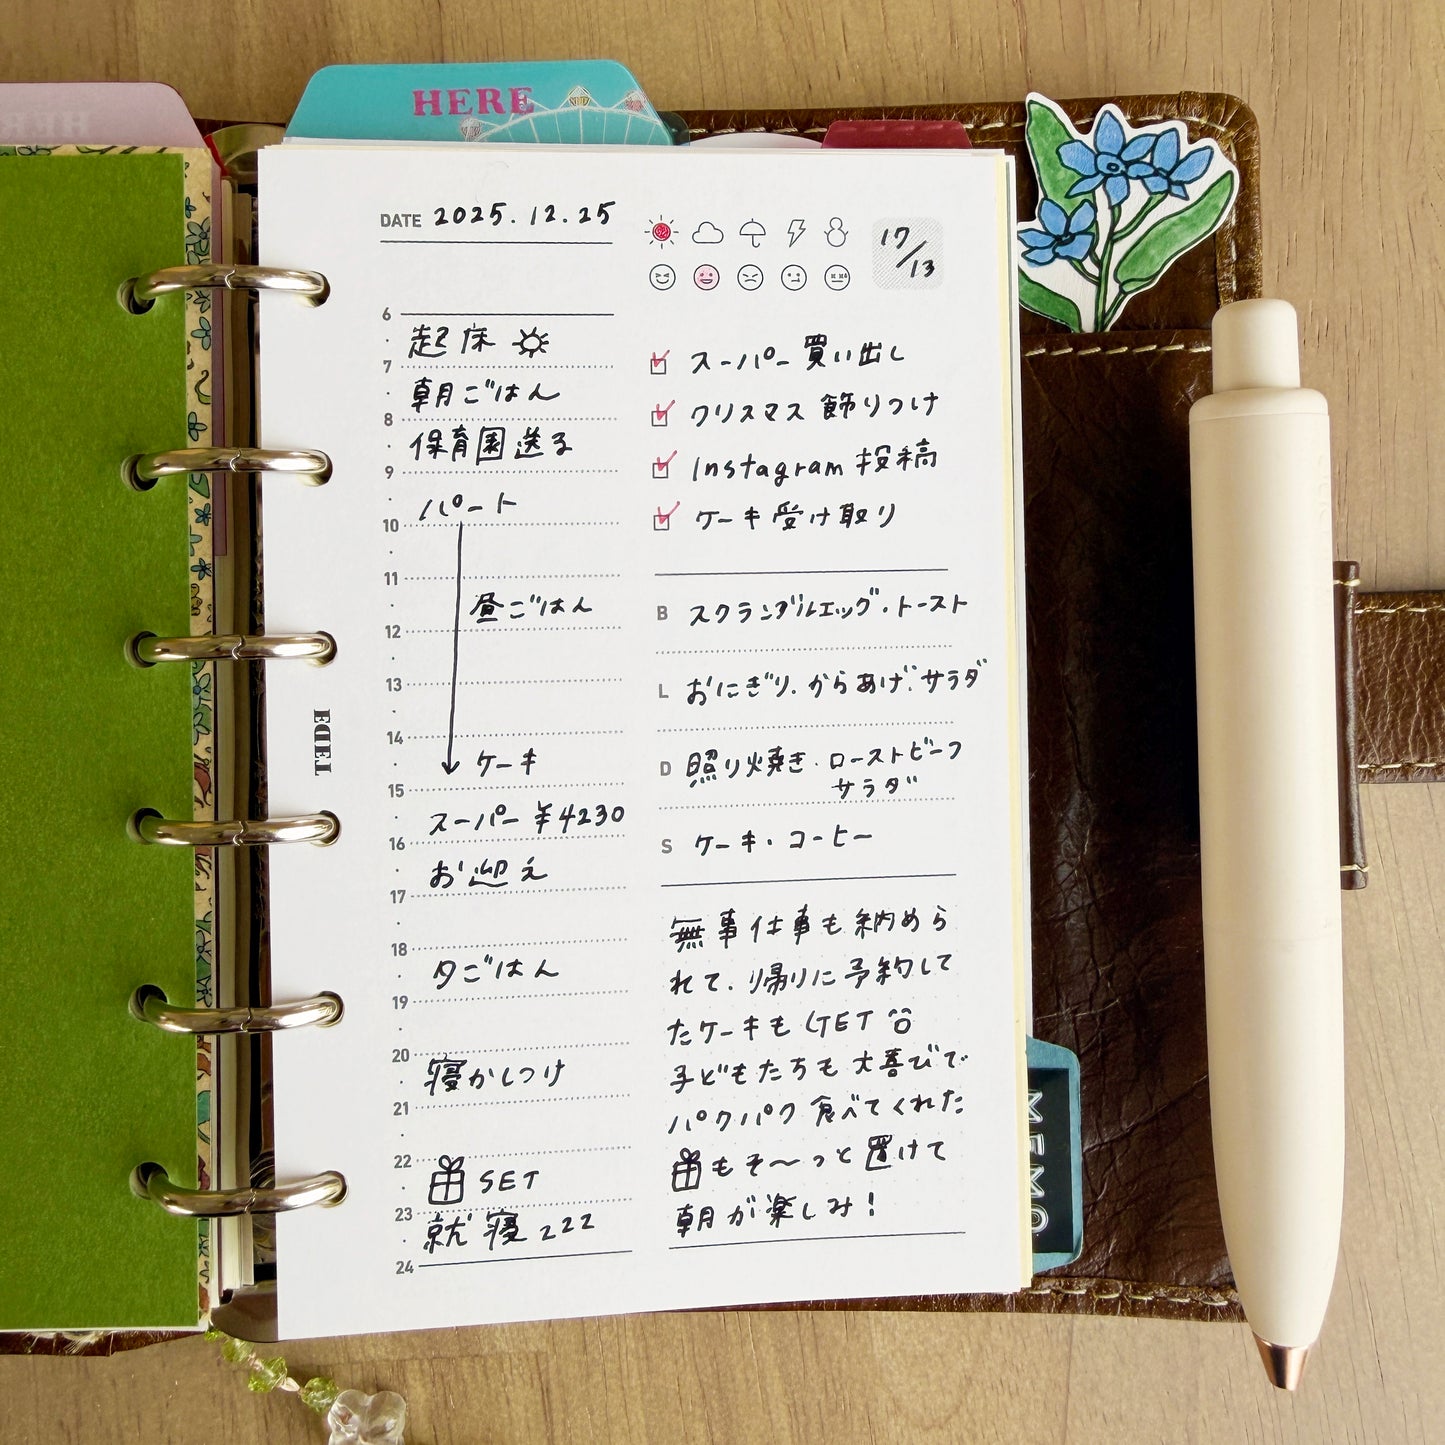 HERE
DATE 2025.12.25
17/13
6
起床
7
朝ごはん
8
保育園送る
9
パート
10
11
昼ごはん
12
13
14
ケーキ
15
スーパー ¥4230
16
お迎え
17
18
夕ごはん
19
20
寝かしつけ
21
22
SET
23
就寝 zzz
24
スーパー買い出し
クリスマス飾りつけ
Instagram投稿
ケーキ受け取り
B スクランブルエッグ・トースト
L おにぎり・からあげ・サラダ
D 照り焼き・ローストビーフ
サラダ
S ケーキ・コーヒー
無事仕事も納めら
れて、帰りに予約して
たケーキもGET
子どもたちも大喜びで
パクパク食べてくれた
もそ〜っと置けて
朝が楽しみ!
EDET
MEMO